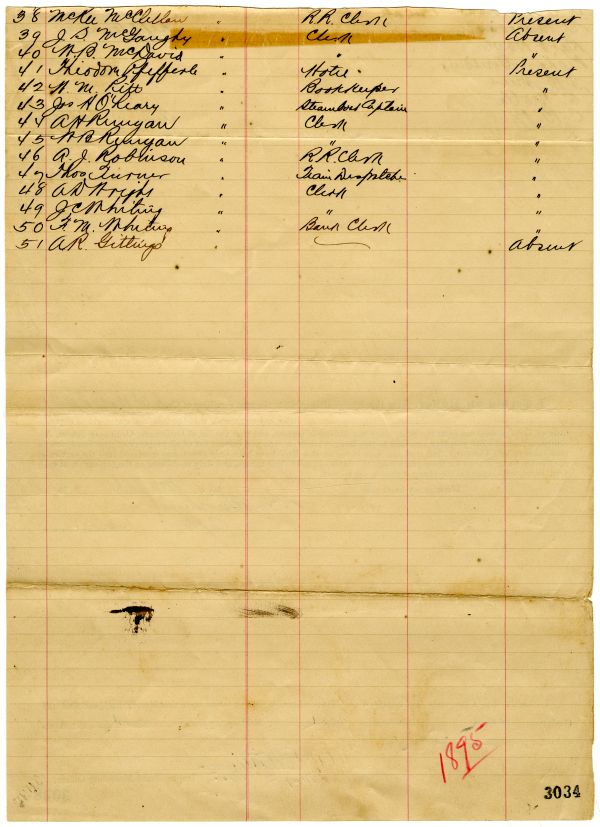 38 McKee McClellen " R.R. Clerk Present
39 J S McGaughy " Clerk Absent
40 W. B. McDavid " " "
41 Theodore Pfefferle " Hotel Present
42 W. M. Pitt " Book Keeper "
43 Jos H O'Leary " Steamboat Captain "
44 A H Runyan " Clerk "
45 W B Runyan " " "
46 A. J. Robinson " R R. Clerk "
47 Thos Turner " Train Despatcher "
48 A D Wright " Clerk "
49 J C Whiting " " "
50 F. M. Whiting " Bank Clerk "
51 A R. Gittings " Absent
1895
3034